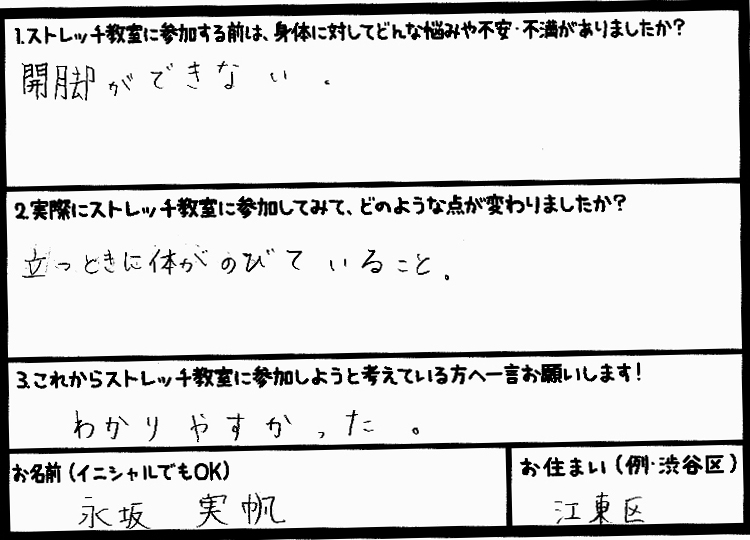 1.ストレッチ教室に参加する前は、身体に対してどんな悩みや不安・不満がありましたか?
開脚ができない.
2.実際にストレッチ教室に参加してみて、どのような点が変わりましたか?
立っときに体がのびていること。
3.これからストレッチ教室に参加しようと考えている方へ一言お願いします!
わかりやすかった。
お名前(イニシャルでもOK)
永坂 実帆
お住まい(例・渋谷区)
江東区